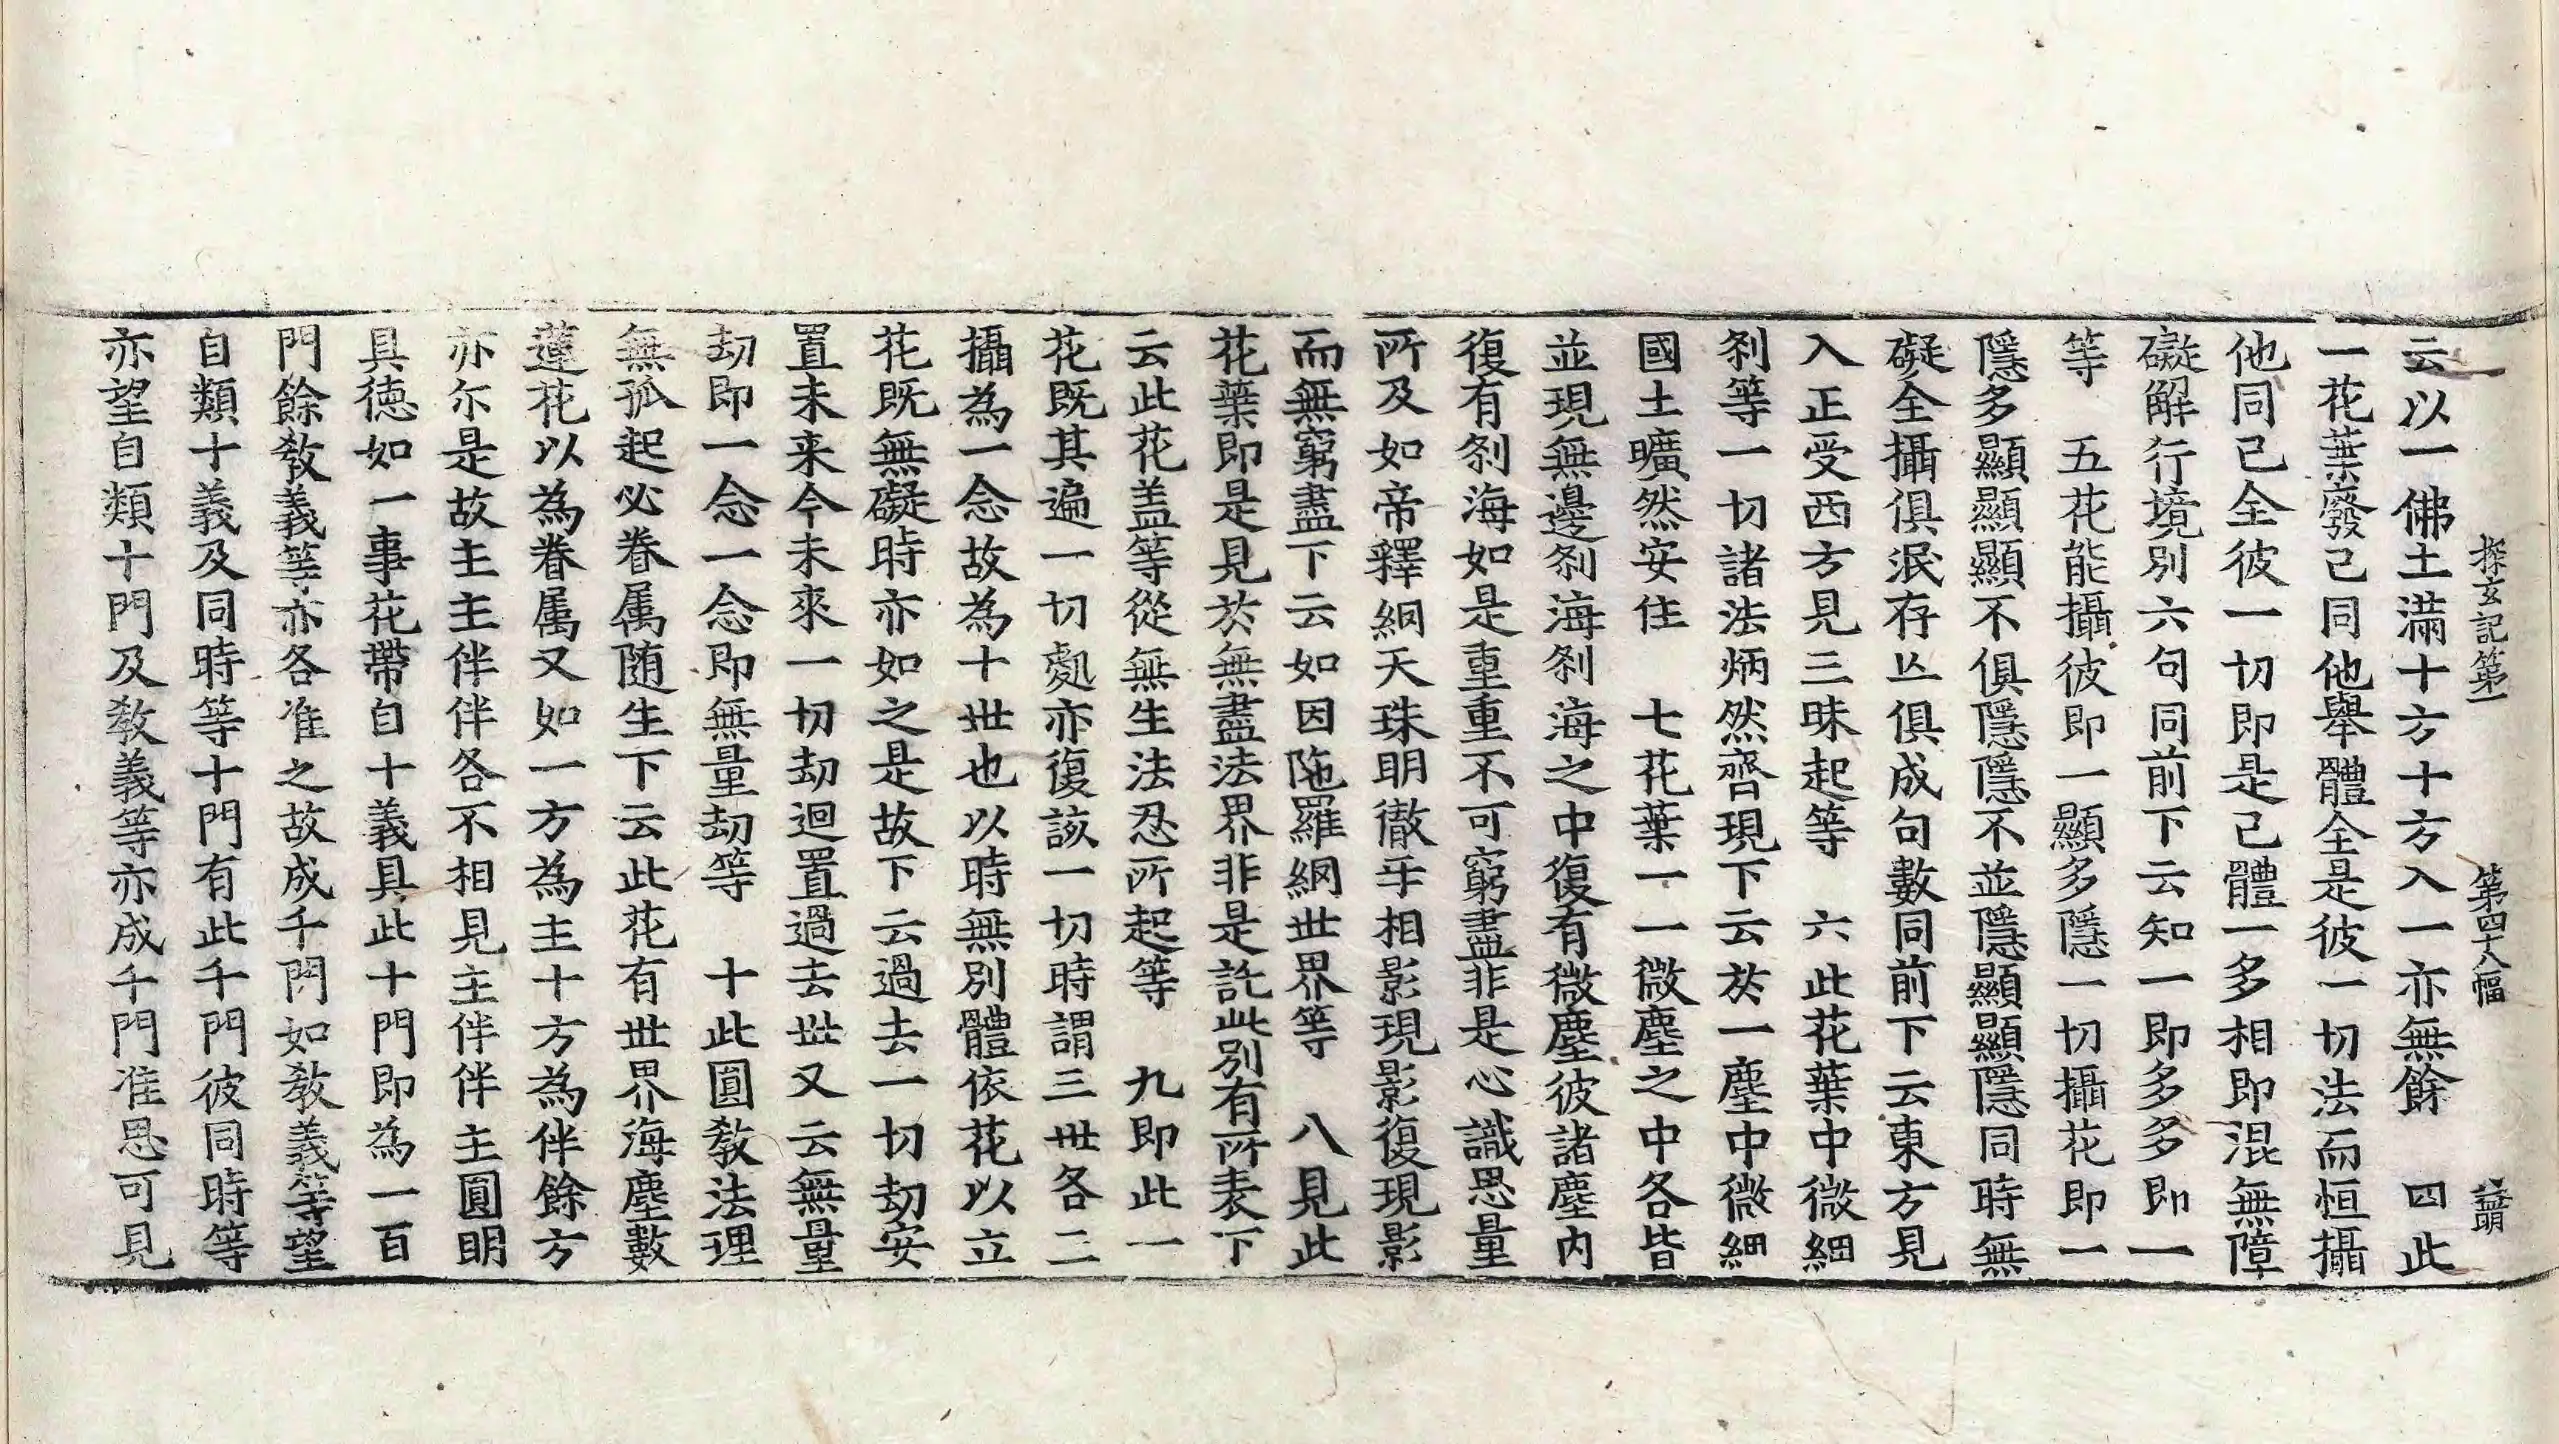 探玄記第一 第四十八幅
云以一佛土滿十方十方入一亦無餘 四此
一花葉廢己同他舉體全是彼一切法而恒攝
他同己全彼一切即是己體一多相即混無障
礙解行境別六句同前下云知一即多多即一
等 五花能攝彼即一顯多隱一切攝花即一
隱多顯顯顯不俱隱隱不並隱顯顯隱同時無
礙全攝俱泯存亡俱成句數同前下云東方見
入正受西方見三昧起等 六此花葉中微細
剎等一切諸法炳然齊現下云於一塵中微細
國土曠然安住 七花葉一一微塵之中各皆
並現無邊剎海剎海之中復有微塵彼諸塵內
復有剎海如是重重不可窮盡非是心識思量
所及如帝釋網天珠明徹互相影現影復現影
而無窮盡下云如因陁羅網世界等 八見此
花葉即是見於無盡法界非是託此別有所表下
云此花盖等從無生法忍所起等 九即此一
花既其遍一切處亦復該一切時謂三世各三
攝為一念故為十世也以時無別體依花以立
花既無礙時亦如之是故下云過去一切劫安
置未来今未來一切劫迴置過去世又云無量
劫即一念一念即無量劫等 十此圓教法理
無孤起必眷属随生下云此花有世界海塵數
蓮花以為眷属又如一方為主十方為伴餘方
亦尔是故主主伴伴各不相見主伴伴主圓明
具德如一事花帶自十義具此十門即為一百
門餘教義等亦各准之故成千門如教義等望
自類十義及同時等十門有此千門彼同時等
亦望自類十門及教義等亦成千門准思可見